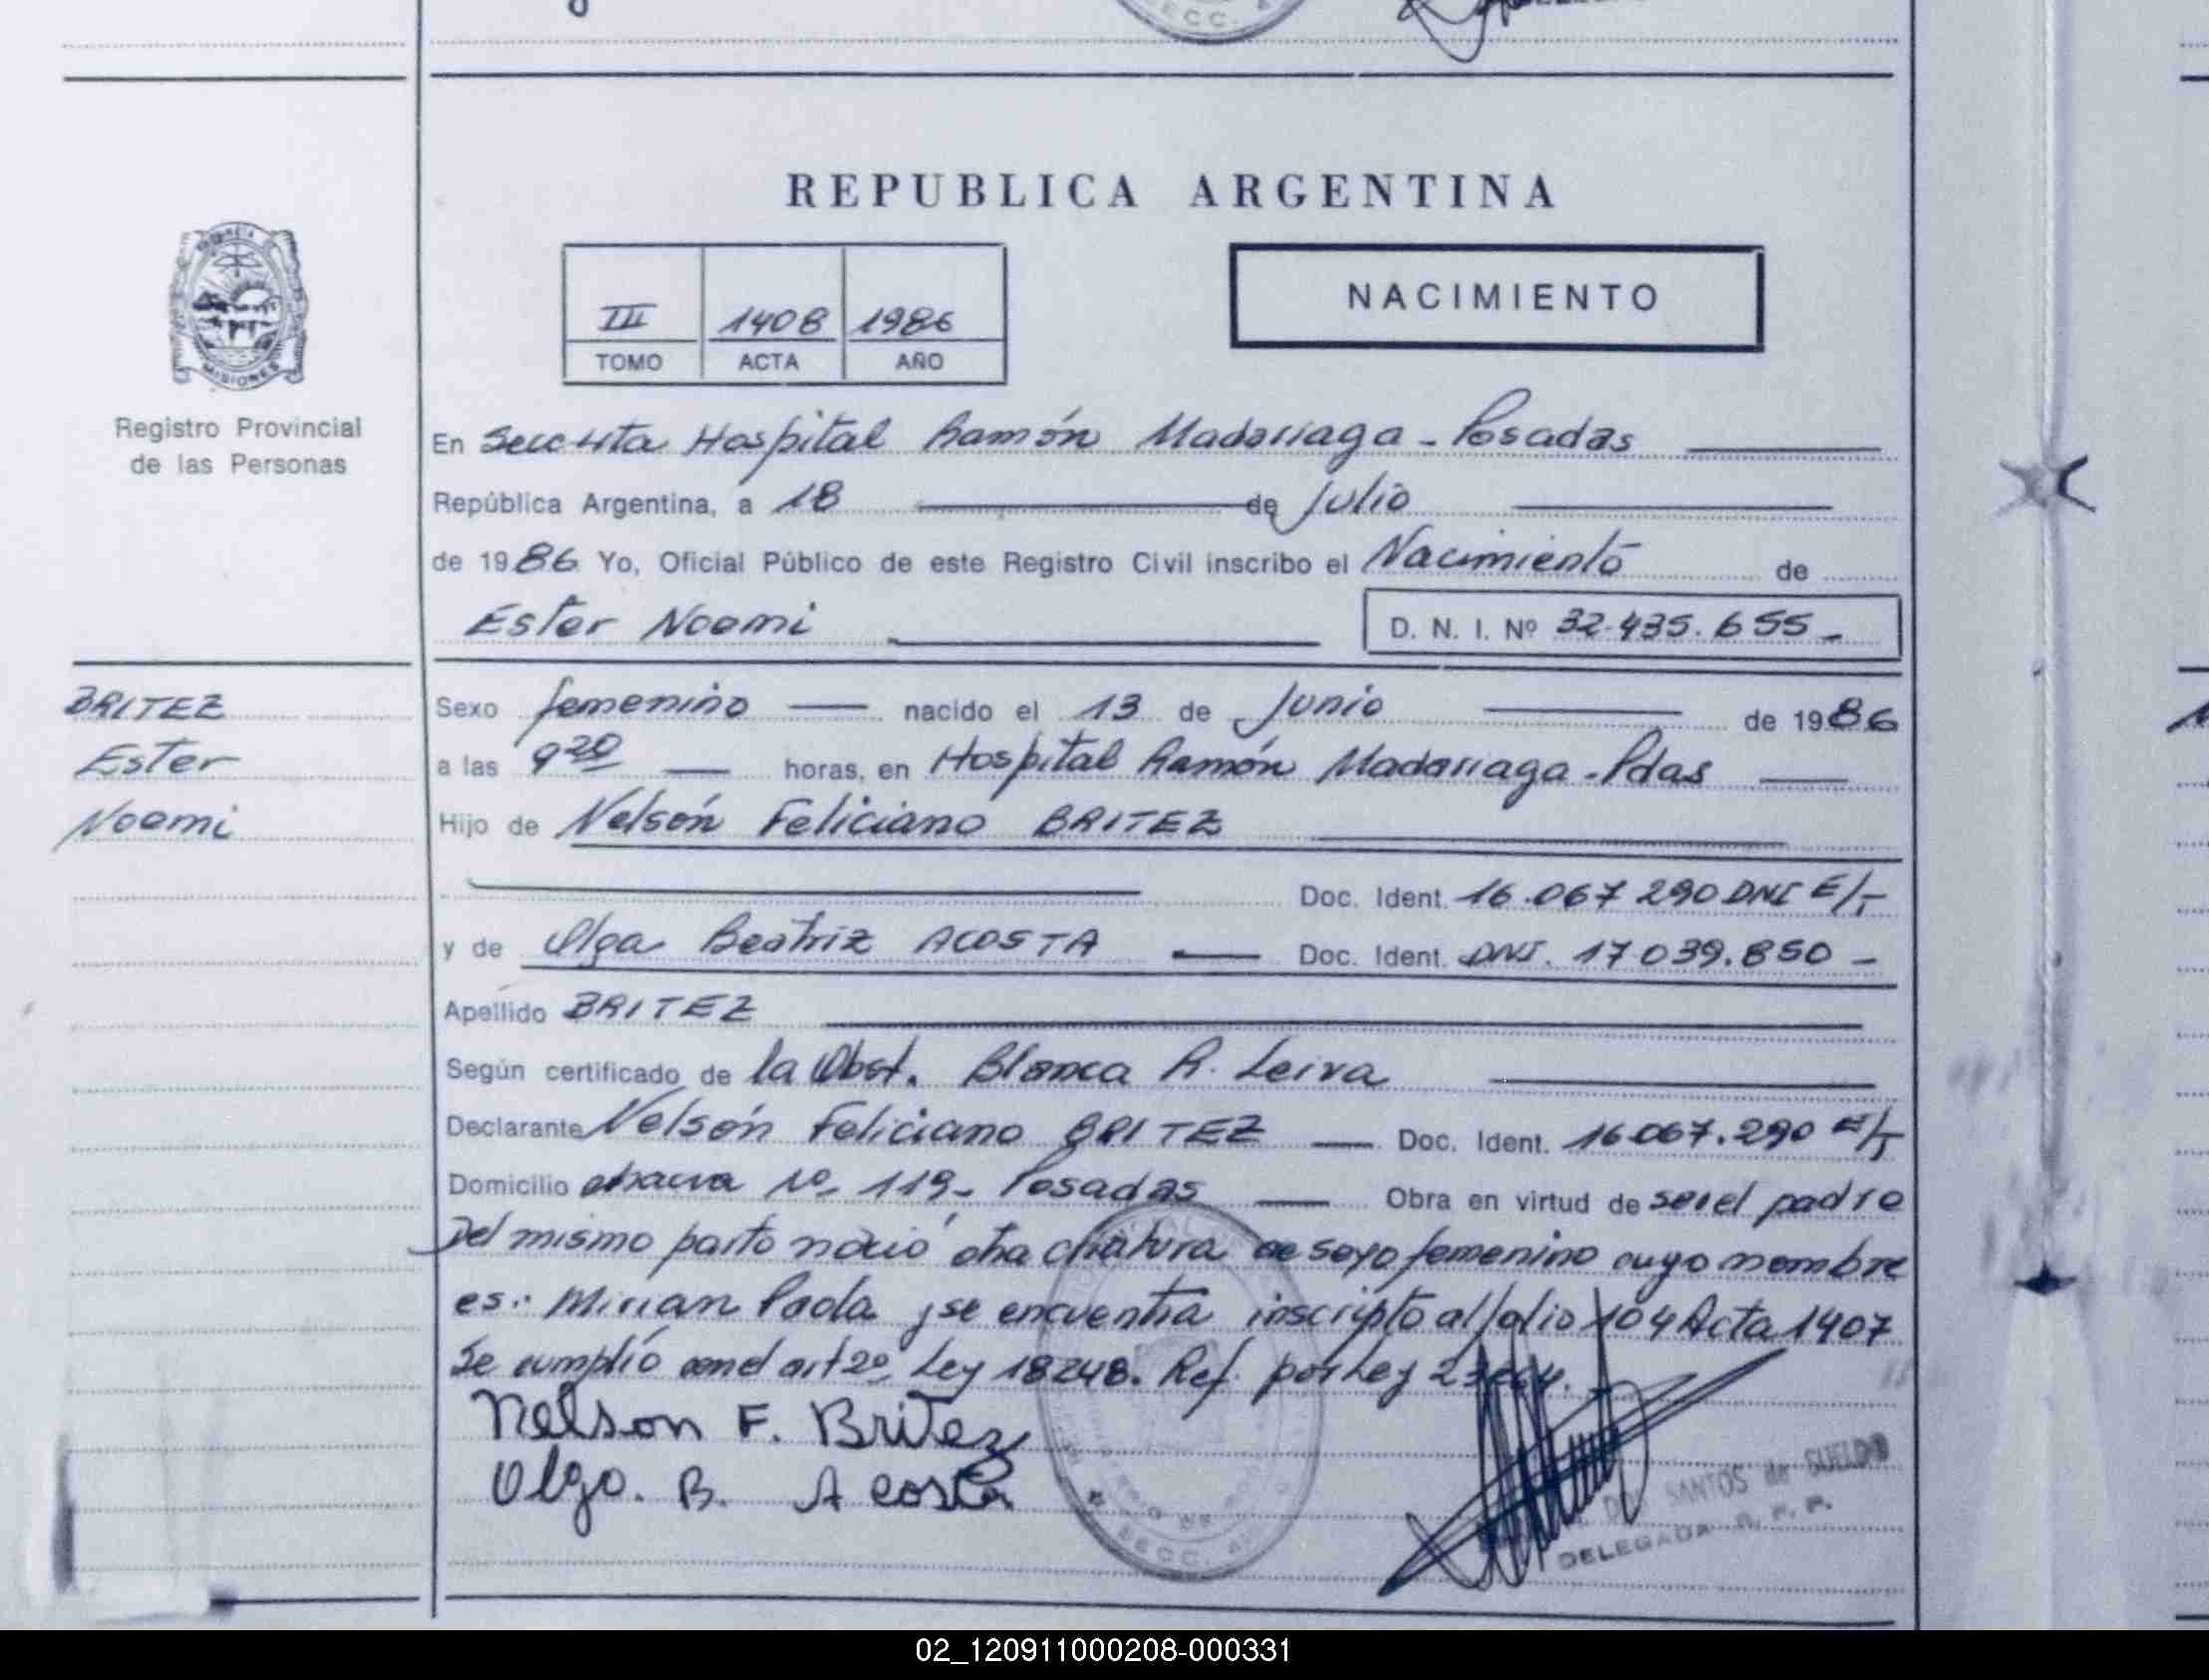 REPUBLICA ARGENTINA
NACIMIENTO
III 1408 1986
TOMO ACTA AÑO
MISIONES
Registro Provincial
de las Personas
En Secc 4ta Hospital Ramón Madariaga - Posadas
República Argentina, a 18 de Julio
de 1986 Yo, Oficial Público de este Registro Civil inscribo el Nacimiento de
Ester Noemi D. N. I. Nº 32.435.655-
BRITEZ
Ester
Noemi
Sexo femenino nacido el 13 de Junio de 1986
a las 9 20 horas, en Hospital Ramón Madariaga - Pdas
Hijo de Nelsón Feliciano BRITEZ
Doc. Ident. 16.067 290 DNI E/T
y de Olga Beatriz ACOSTA Doc. Ident. DNI. 17.039.850 -
Apellido BRITEZ
Según certificado de la Obst. Blanca R. Leiva
Declarante Nelsón Feliciano BRITEZ Doc. Ident. 16.067.290 E/T
Domicilio Nº 119 - Posadas Obra en virtud de ser el padre
Del mismo parto nació otra criatura de sexo femenino cuyo nombre
es: Mirian Paola y se encuentra inscripto al folio 104 Acta 1407
Se cumplió con el art 2º Ley 18248. Ref. por Ley
Nelson F. Britez
Olga. B. Acosta
SECC.
DOS SANTOS de SUELDO
DELEGADA R. P. P.
02_120911000208-000331